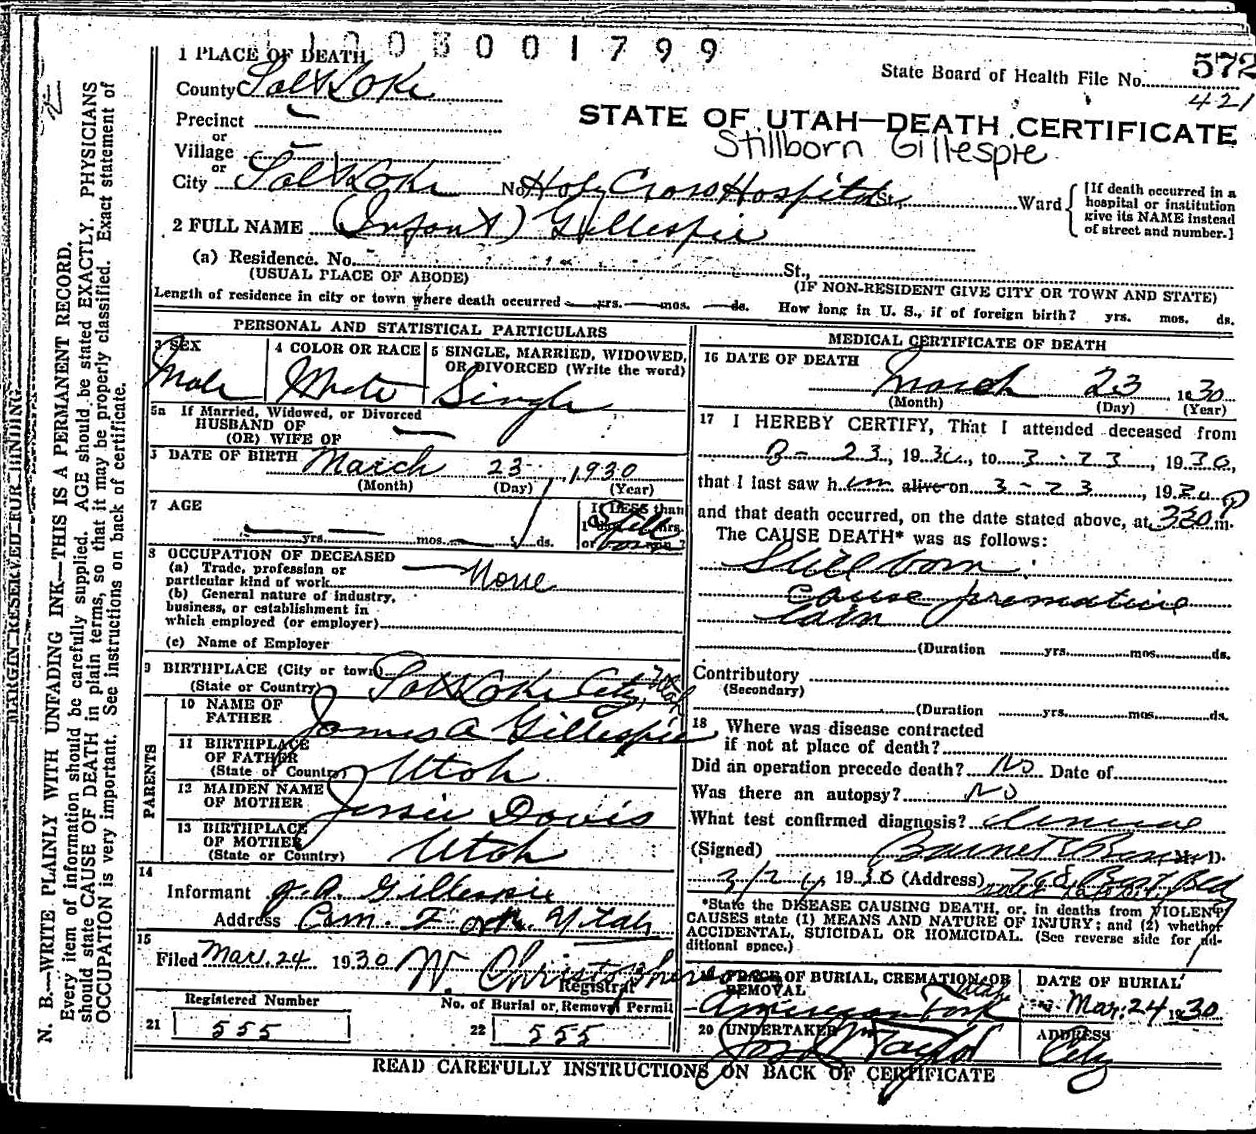 1003001799
1 PLACE OF DEATH
State Board of Health File No. 572
421
County Salt Lake
STATE OF UTAH—DEATH CERTIFICATE
Precinct
or
Stillborn Gillespie
Village
or
City Salt Lake No. Holy Cross Hospital St., Ward
[If death occurred in a hospital or institution give its NAME instead of street and number.]
2 FULL NAME (Infant) Gillespie
(a) Residence. No. St.,
(USUAL PLACE OF ABODE) (IF NON-RESIDENT GIVE CITY OR TOWN AND STATE)
Length of residence in city or town where death occurred yrs. mos. ds. How long in U. S., if of foreign birth? yrs. mos. ds.
PERSONAL AND STATISTICAL PARTICULARS
3 SEX 4 COLOR OR RACE 5 SINGLE, MARRIED, WIDOWED, OR DIVORCED (Write the word)
Male White Single
5a If Married, Widowed, or Divorced
HUSBAND OF
(OR) WIFE OF
DATE OF BIRTH March 23 1930
(Month) (Day) (Year)
7 AGE If LESS than
yrs. mos. ds. Still born
8 OCCUPATION OF DECEASED
(a) Trade, profession or
particular kind of work None
(b) General nature of industry,
business, or establishment in
which employed (or employer)
(c) Name of Employer
9 BIRTHPLACE (City or town) Salt Lake City, Utah
(State or Country)
PARENTS
10 NAME OF FATHER James A Gillespie
11 BIRTHPLACE OF FATHER Utah
(State or Country)
12 MAIDEN NAME OF MOTHER Jessie Davis
13 BIRTHPLACE OF MOTHER Utah
(State or Country)
14
Informant J. A. Gillespie
Address Am. Fork Utah
15
Filed Mar. 24 1930 W. Christopherson
Registrar
Registered Number No. of Burial or Removal Permit
21 555 22 555
MEDICAL CERTIFICATE OF DEATH
16 DATE OF DEATH
March 23 1930
(Month) (Day) (Year)
17 I HEREBY CERTIFY, That I attended deceased from
3-23, 1930, to 3-23, 1930,
that I last saw him alive on 3-23, 1930
and that death occurred, on the date stated above, at 330 P m.
The CAUSE DEATH* was as follows:
Stillborn
Cause premature
(Duration yrs. mos. ds.
Contributory
(Secondary)
(Duration yrs. mos. ds.
18 Where was disease contracted
if not at place of death?
Did an operation precede death? No Date of
Was there an autopsy? No
What test confirmed diagnosis?
(Signed) M. D.
1930 (Address)
*State the DISEASE CAUSING DEATH, or, in deaths from VIOLENT
CAUSES state (1) MEANS AND NATURE OF INJURY; and (2) whether
ACCIDENTAL, SUICIDAL OR HOMICIDAL. (See reverse side for additional space.)
PLACE OF BURIAL, CREMATION, OR REMOVAL DATE OF BURIAL
American Fork Utah Mar. 24 1930
20 UNDERTAKER ADDRESS
Taylor City
READ CAREFULLY INSTRUCTIONS ON BACK OF CERTIFICATE
MARGIN RESERVED FOR BINDING
N. B.—WRITE PLAINLY WITH UNFADING INK—THIS IS A PERMANENT RECORD.
Every item of information should be carefully supplied. AGE should be stated EXACTLY. PHYSICIANS
should state CAUSE OF DEATH in plain terms, so that it may be properly classified. Exact statement of
OCCUPATION is very important. See instructions on back of certificate.